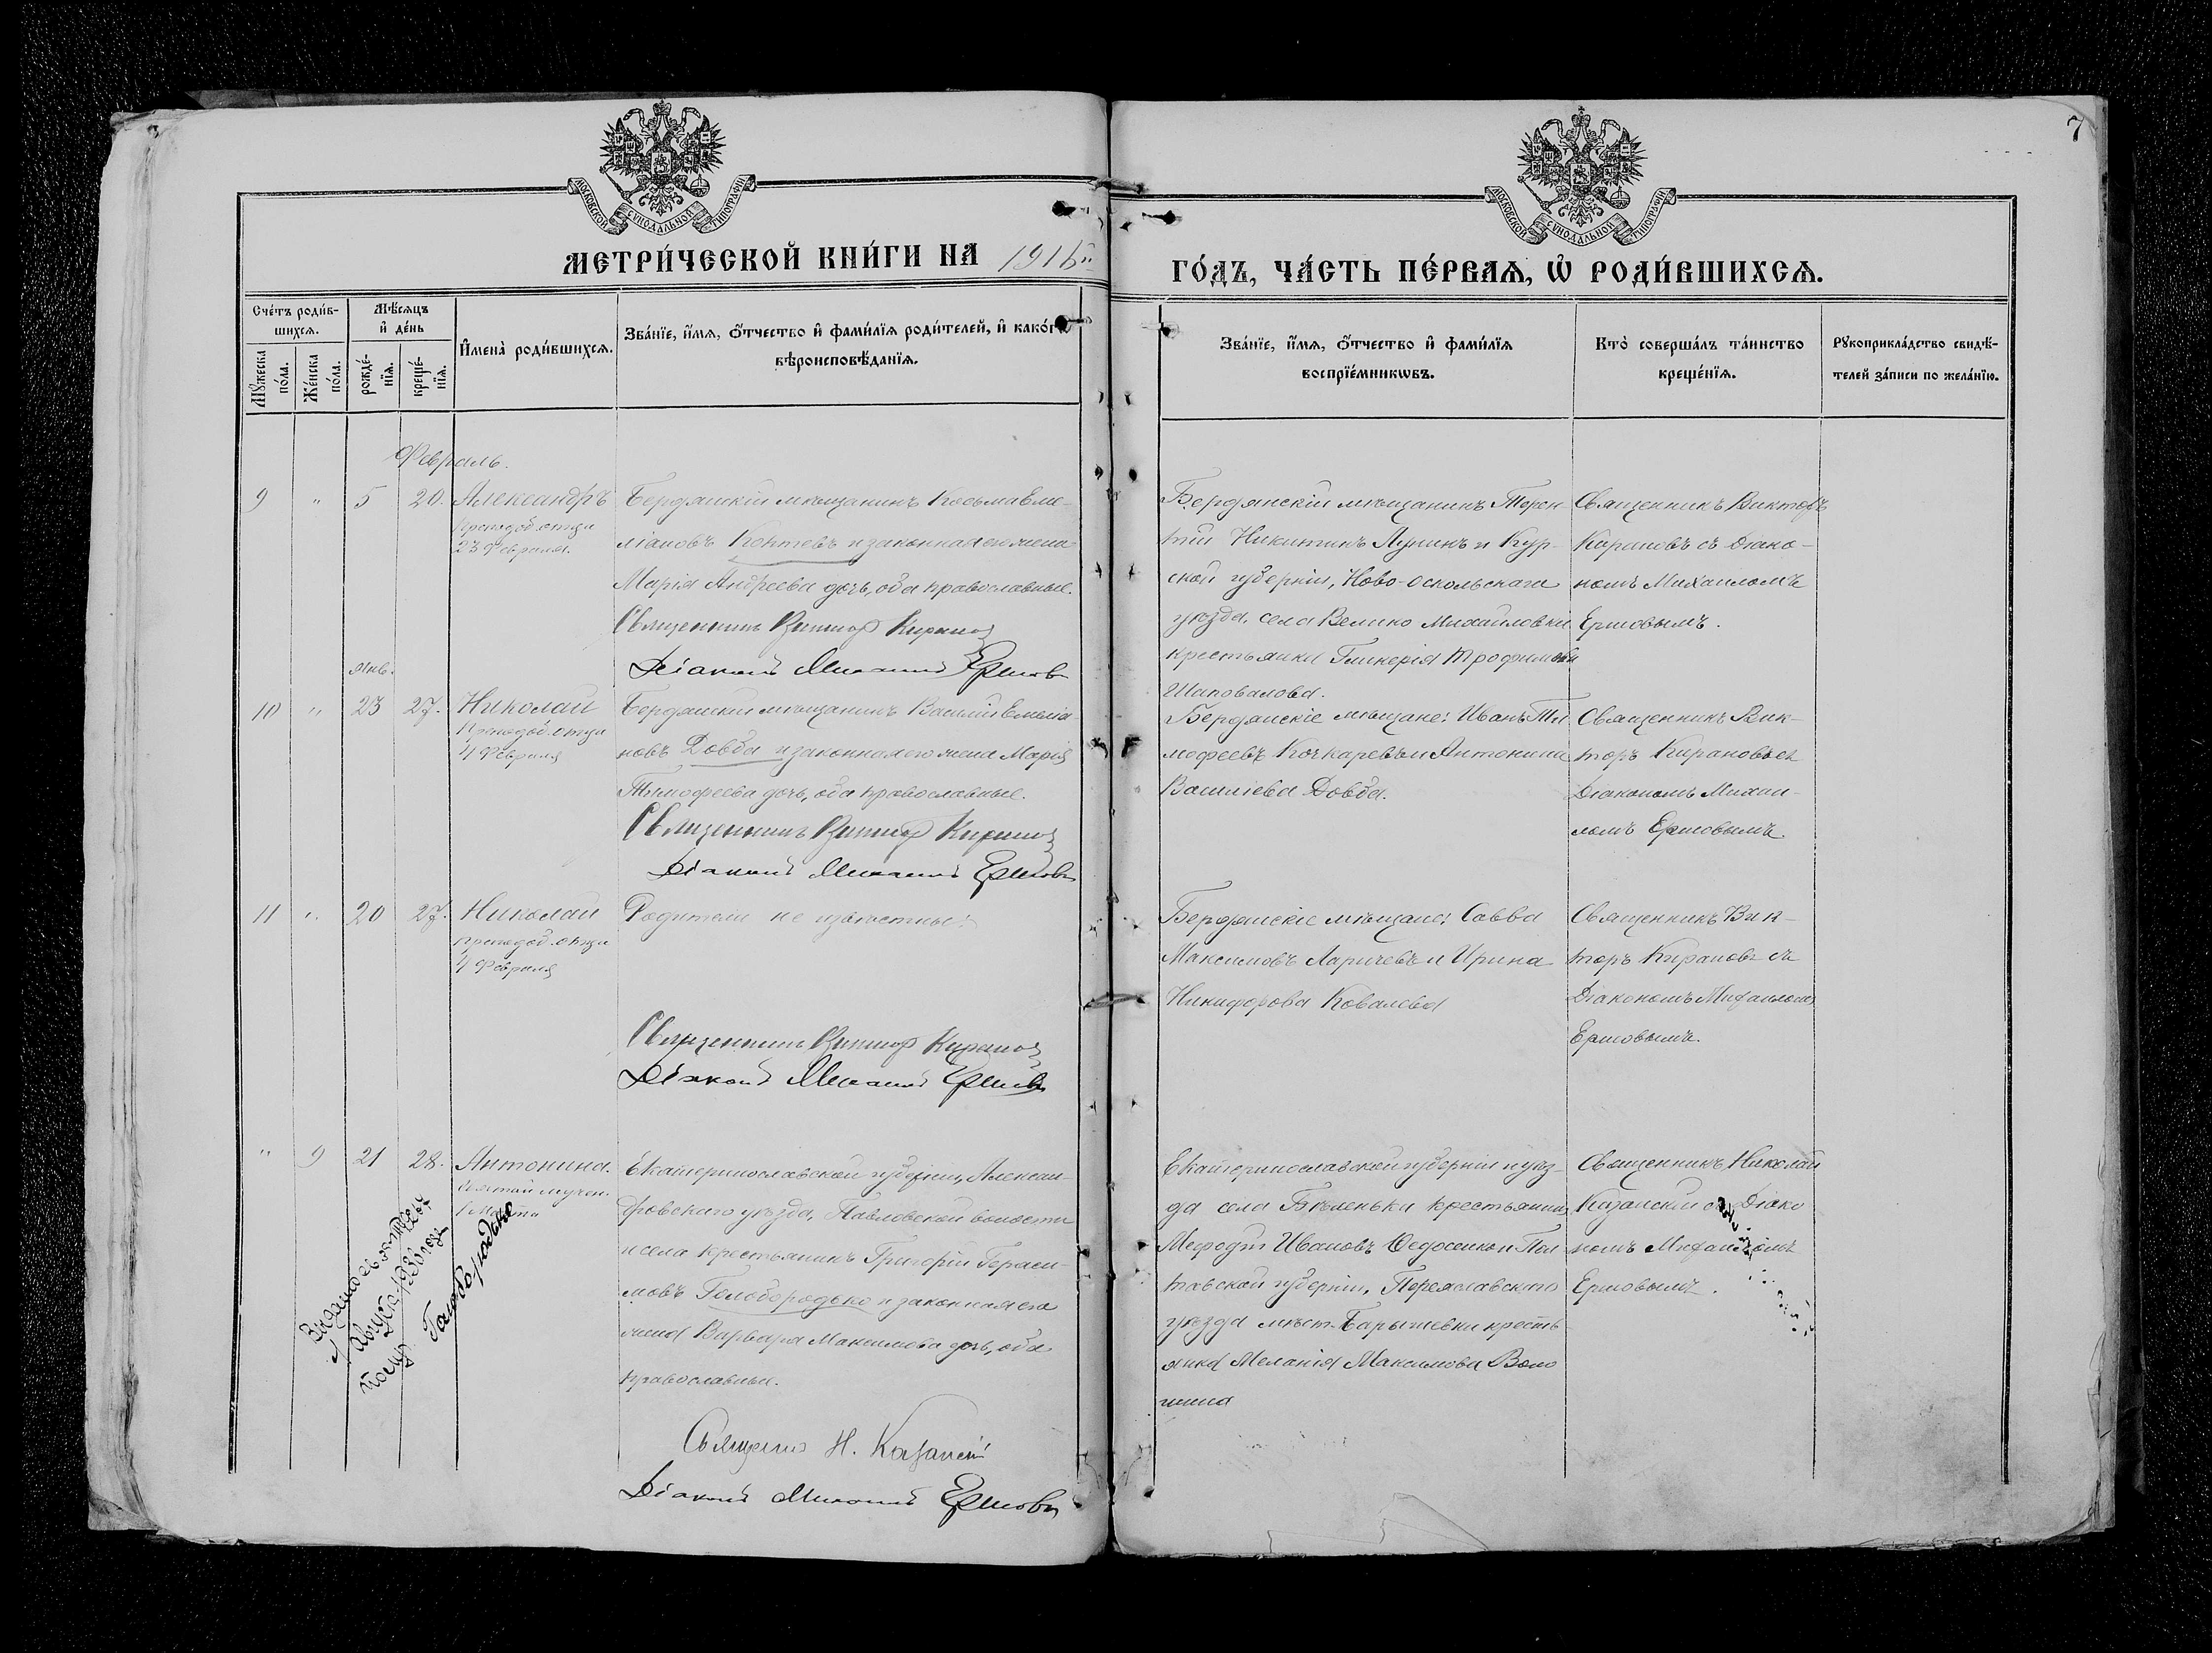 7
МОСКОВСКОЙ СѴНОДАЛЬНОЙ ТИПОГРАФІИ
МОСКОВСКОЙ СѴНОДАЛЬНОЙ ТИПОГРАФІИ
МЕТРИ́ЧЕСКОЙ КНИ́ГИ НА 1916
ГО́ДЪ, ЧА́СТЬ ПЕ́РВАѦ, Ѡ҆ РОДИ́ВШИХСѦ.
Сче́тъ роди́в-
шихсѧ.
Мꙋ́жеска
по́ла.
Же́нска
по́ла.
Мѣ́сѧцъ
и҆ де́нь
рожде́-
нїѧ.
креще́-
нїѧ.
И҆мена̀ роди́вшихсѧ.
Зва́нїе, и҆́мѧ, ѻ҆́тчество и҆ фами́лїѧ роди́телей, и҆ како́гѡ
вѣроисповѣ́данїѧ.
Зва́нїе, и҆́мѧ, ѻ҆́тчество и҆ фами́лїѧ
воспрїе́мникѡвъ.
Кто̀ соверша́лъ та́инство
креще́нїѧ.
Рꙋкоприкла́дство свидѣ́-
телей за́писи по жела́нїю.
Февраль.
9 " 5 20. Александръ
преподоб. отца
23 Февраля.
Бердянскій мѣщанинъ Косьма Еме-
ліановъ Коптевъ и законная его жена
Марія Андреева дочь, оба православные.
Священникъ Викторъ Кирановъ
Діаконъ Михаилъ Ершовъ
Бердянскій мѣщанинъ Терен-
тій Никитинъ Лунинъ и Кур-
ской губерніи, Ново-Оскольскаго
уѣзда, села Велико Михайловки
крестьянка Гликерія Трофимова
Шаповалова.
Священникъ Викторъ
Кирановъ съ Діако-
номъ Михаиломъ
Ершовымъ.
янв.
10 " 23 27. Николай
преподоб. отца
4 Февраля
Бердянскій мѣщанинъ Василій Емелiа-
новъ Довба и законная его жена Марія
Тимофеева дочь, оба православные.
Священникъ Викторъ Кирановъ
Діаконъ Михаилъ Ершовъ
Бердянскіе мѣщане: Иванъ Ти-
мофеевъ Кочкаревъ и Антонина
Василіева Довба.
Священникъ Вик-
торъ Кирановъ съ
Діакономъ Михаи-
ломъ Ершовымъ.
11 " 20 27. Николай
преподоб. отца
4 Февраля
Родители не извѣстны.
Священникъ Викторъ Кирановъ
Діаконъ Михаилъ Ершовъ
Бердянскіе мѣщане: Савва
Максимовъ Ларичевъ и Ирина
Никифорова Ковалева
Священникъ Вик-
торъ Кирановъ съ
Діакономъ Михаиломъ
Ершовымъ.
" 9 21 28. Антонина.
святой мучен.
1 Марта
Екатеринославской губерніи, Алексан-
дровскаго уѣзда, Павловской волости
и села крестьянинъ Григорій Гераси-
мовъ Голобородько и законная его
жена Варвара Максимова дочь, оба
православные.
Священникъ Н. Казанскій
Діаконъ Михаилъ Ершовъ
Екатеринославской губерніи и уѣз-
да села Бѣленьки крестьянинъ
Мефодій Ивановъ Федосенко и Пол-
тавской губерніи, Переяславскаго
уѣзда мѣст. Барышевки кресть-
янка Меланія Максимова Воло-
шина
Священникъ Николай
Казанскій съ Діако-
номъ Михаиломъ
Ершовымъ.
Августа
Голобородько